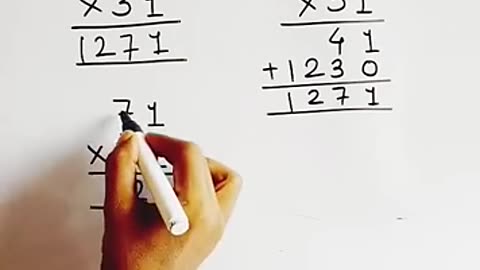 × 31
1271
71
×
× 31
41
+1230
1271